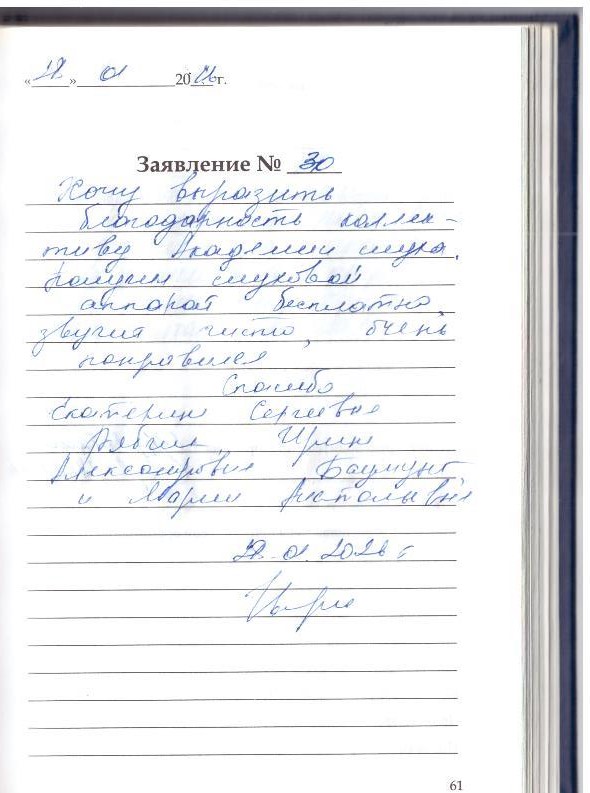 «22» 01 2026г.
Заявление № 30
Хочу выразить
благодарность коллек-
тиву Академии слуха,
получил слуховой
аппарат бесплатно,
звучит чисто, очень
понравился
Спасибо
Екатерине Сергеевне
Ирине
Александровне Баумунг,
и Марии Анатольевне
22.01.2026 г
61